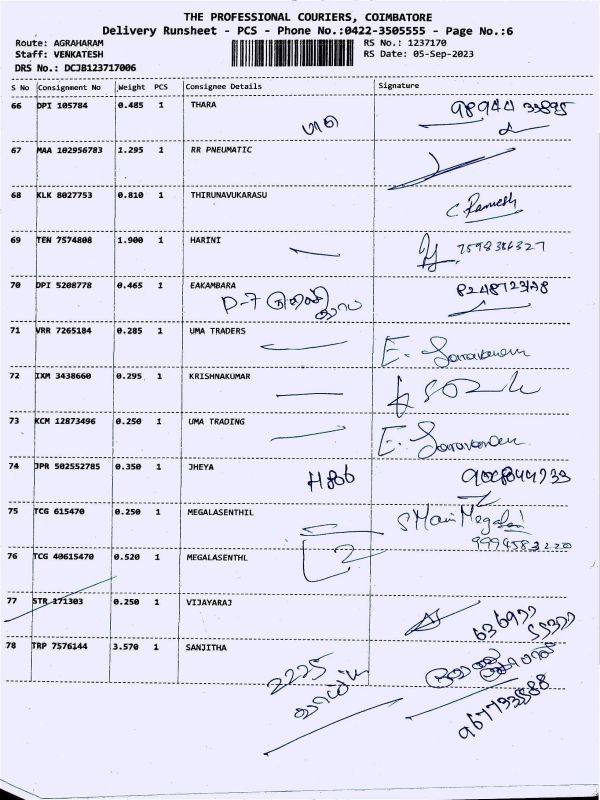 THE PROFESSIONAL COURIERS, COIMBATORE
Delivery Runsheet - PCS - Phone No.:0422-3505555 - Page No.:6
Route: AGRAHARAM RS No.: 1237170
Staff: VENKATESH RS Date: 05-Sep-2023
DRS No.: DCJB123717006
S No Consignment No Weight PCS Consignee Details Signature
66 DPI 105784 0.485 1 THARA
67 MAA 102956783 1.295 1 RR PNEUMATIC
68 KLK 8027753 0.810 1 THIRUNAVUKARASU
C. Ramesh
69 TEN 7574808 1.900 1 HARINI
7598386327
70 DPI 5208778 0.465 1 EAKAMBARA
D-7
71 VRR 7265184 0.285 1 UMA TRADERS
E. Saravanan
72 IXM 3438660 0.295 1 KRISHNAKUMAR
73 KCM 12873496 0.250 1 UMA TRADING
E. Saravanan
74 JPR 502552785 0.350 1 JHEYA
H806
75 TCG 615470 0.250 1 MEGALASENTHIL
9994583220
76 TCG 40615470 0.520 1 MEGALASENTHL
77 STR 171303 0.250 1 VIJAYARAJ
78 TRP 7576144 3.570 1 SANJITHA
2225